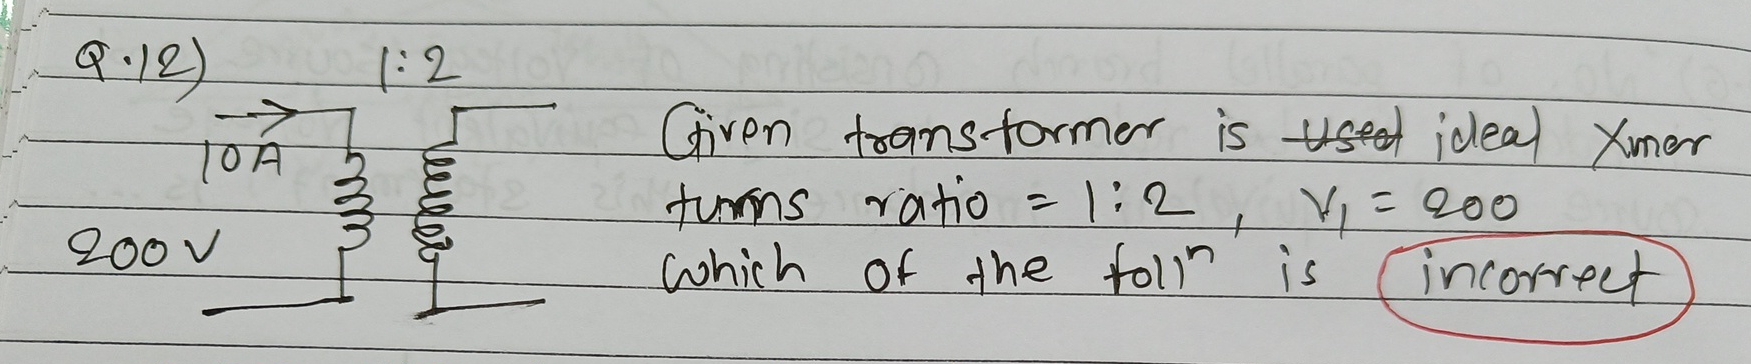 Q.12) 1:2
10A Given transformer is used ideal Xmer
turns ratio = 1:2, V₁ = 200
200V which of the follⁿ is incorrect